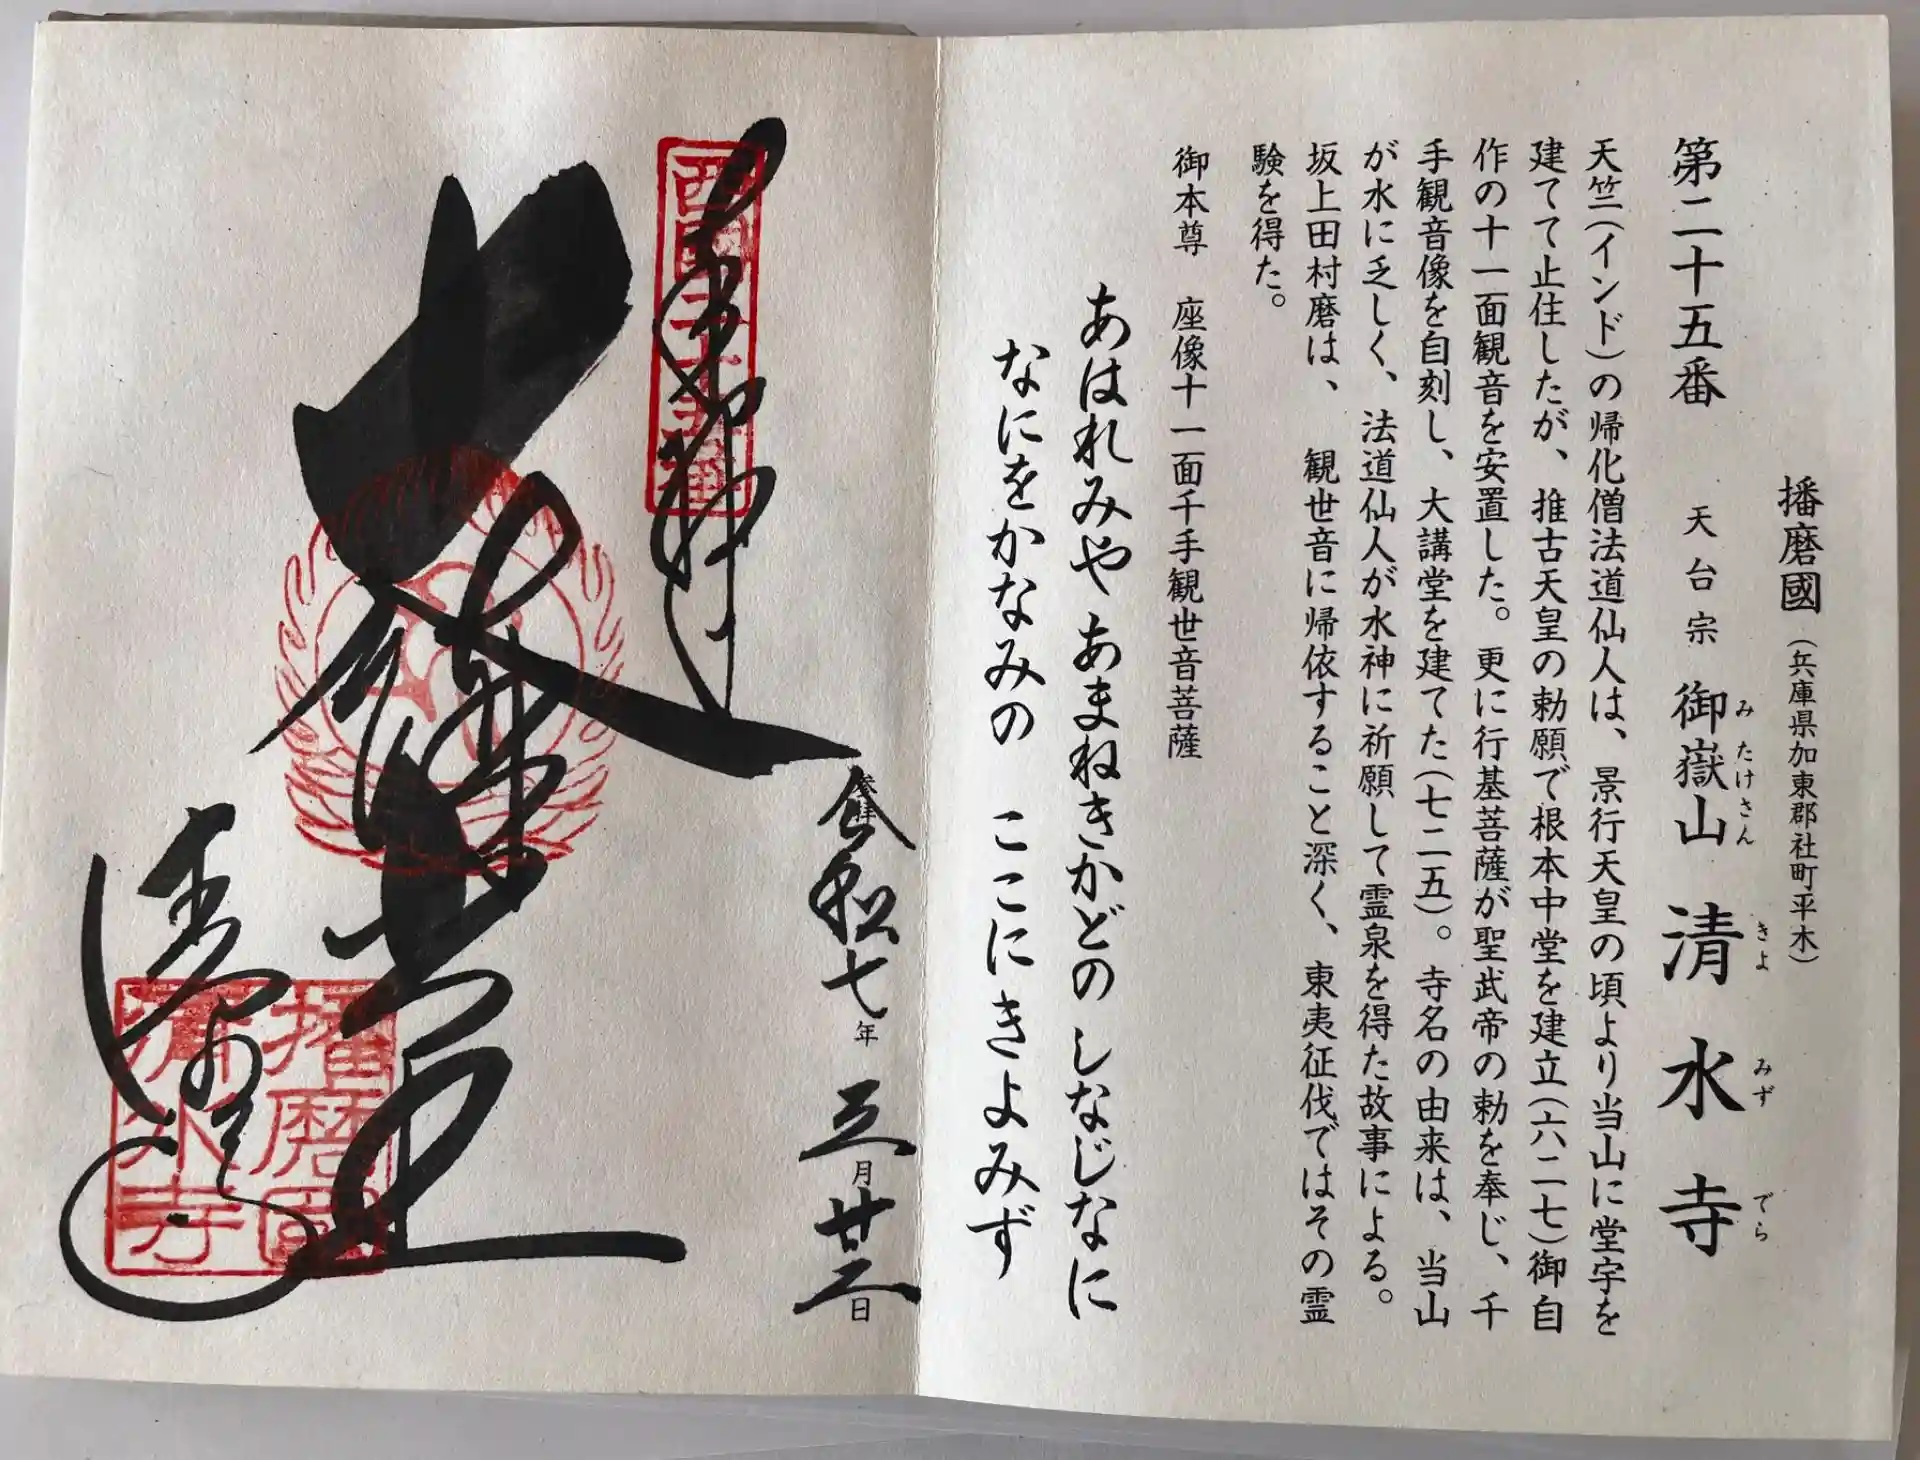 播磨國（兵庫県加東郡社町平木）
第二十五番 天台宗 御嶽山 清水寺
みたけさん きよみずでら
天竺（インド）の帰化僧法道仙人は、景行天皇の頃より当山に堂宇を
建てて止住したが、推古天皇の勅願で根本中堂を建立（六二七）御自
作の十一面観音を安置した。更に行基菩薩が聖武帝の勅を奉じ、千
手観音像を自刻し、大講堂を建てた（七二五）。寺名の由来は、当山
が水に乏しく、法道仙人が水神に祈願して霊泉を得た故事による。
坂上田村磨は、観世音に帰依すること深く、東夷征伐ではその霊
験を得た。
御本尊 座像十一面千手観世音菩薩
あはれみや あまねきかどの しなじなに
なにをかなみの ここにきよみず
奉拝
西国二十五番
参拝
令和七年 三月廿二日
大悲閣
清水寺
播磨國
清水寺